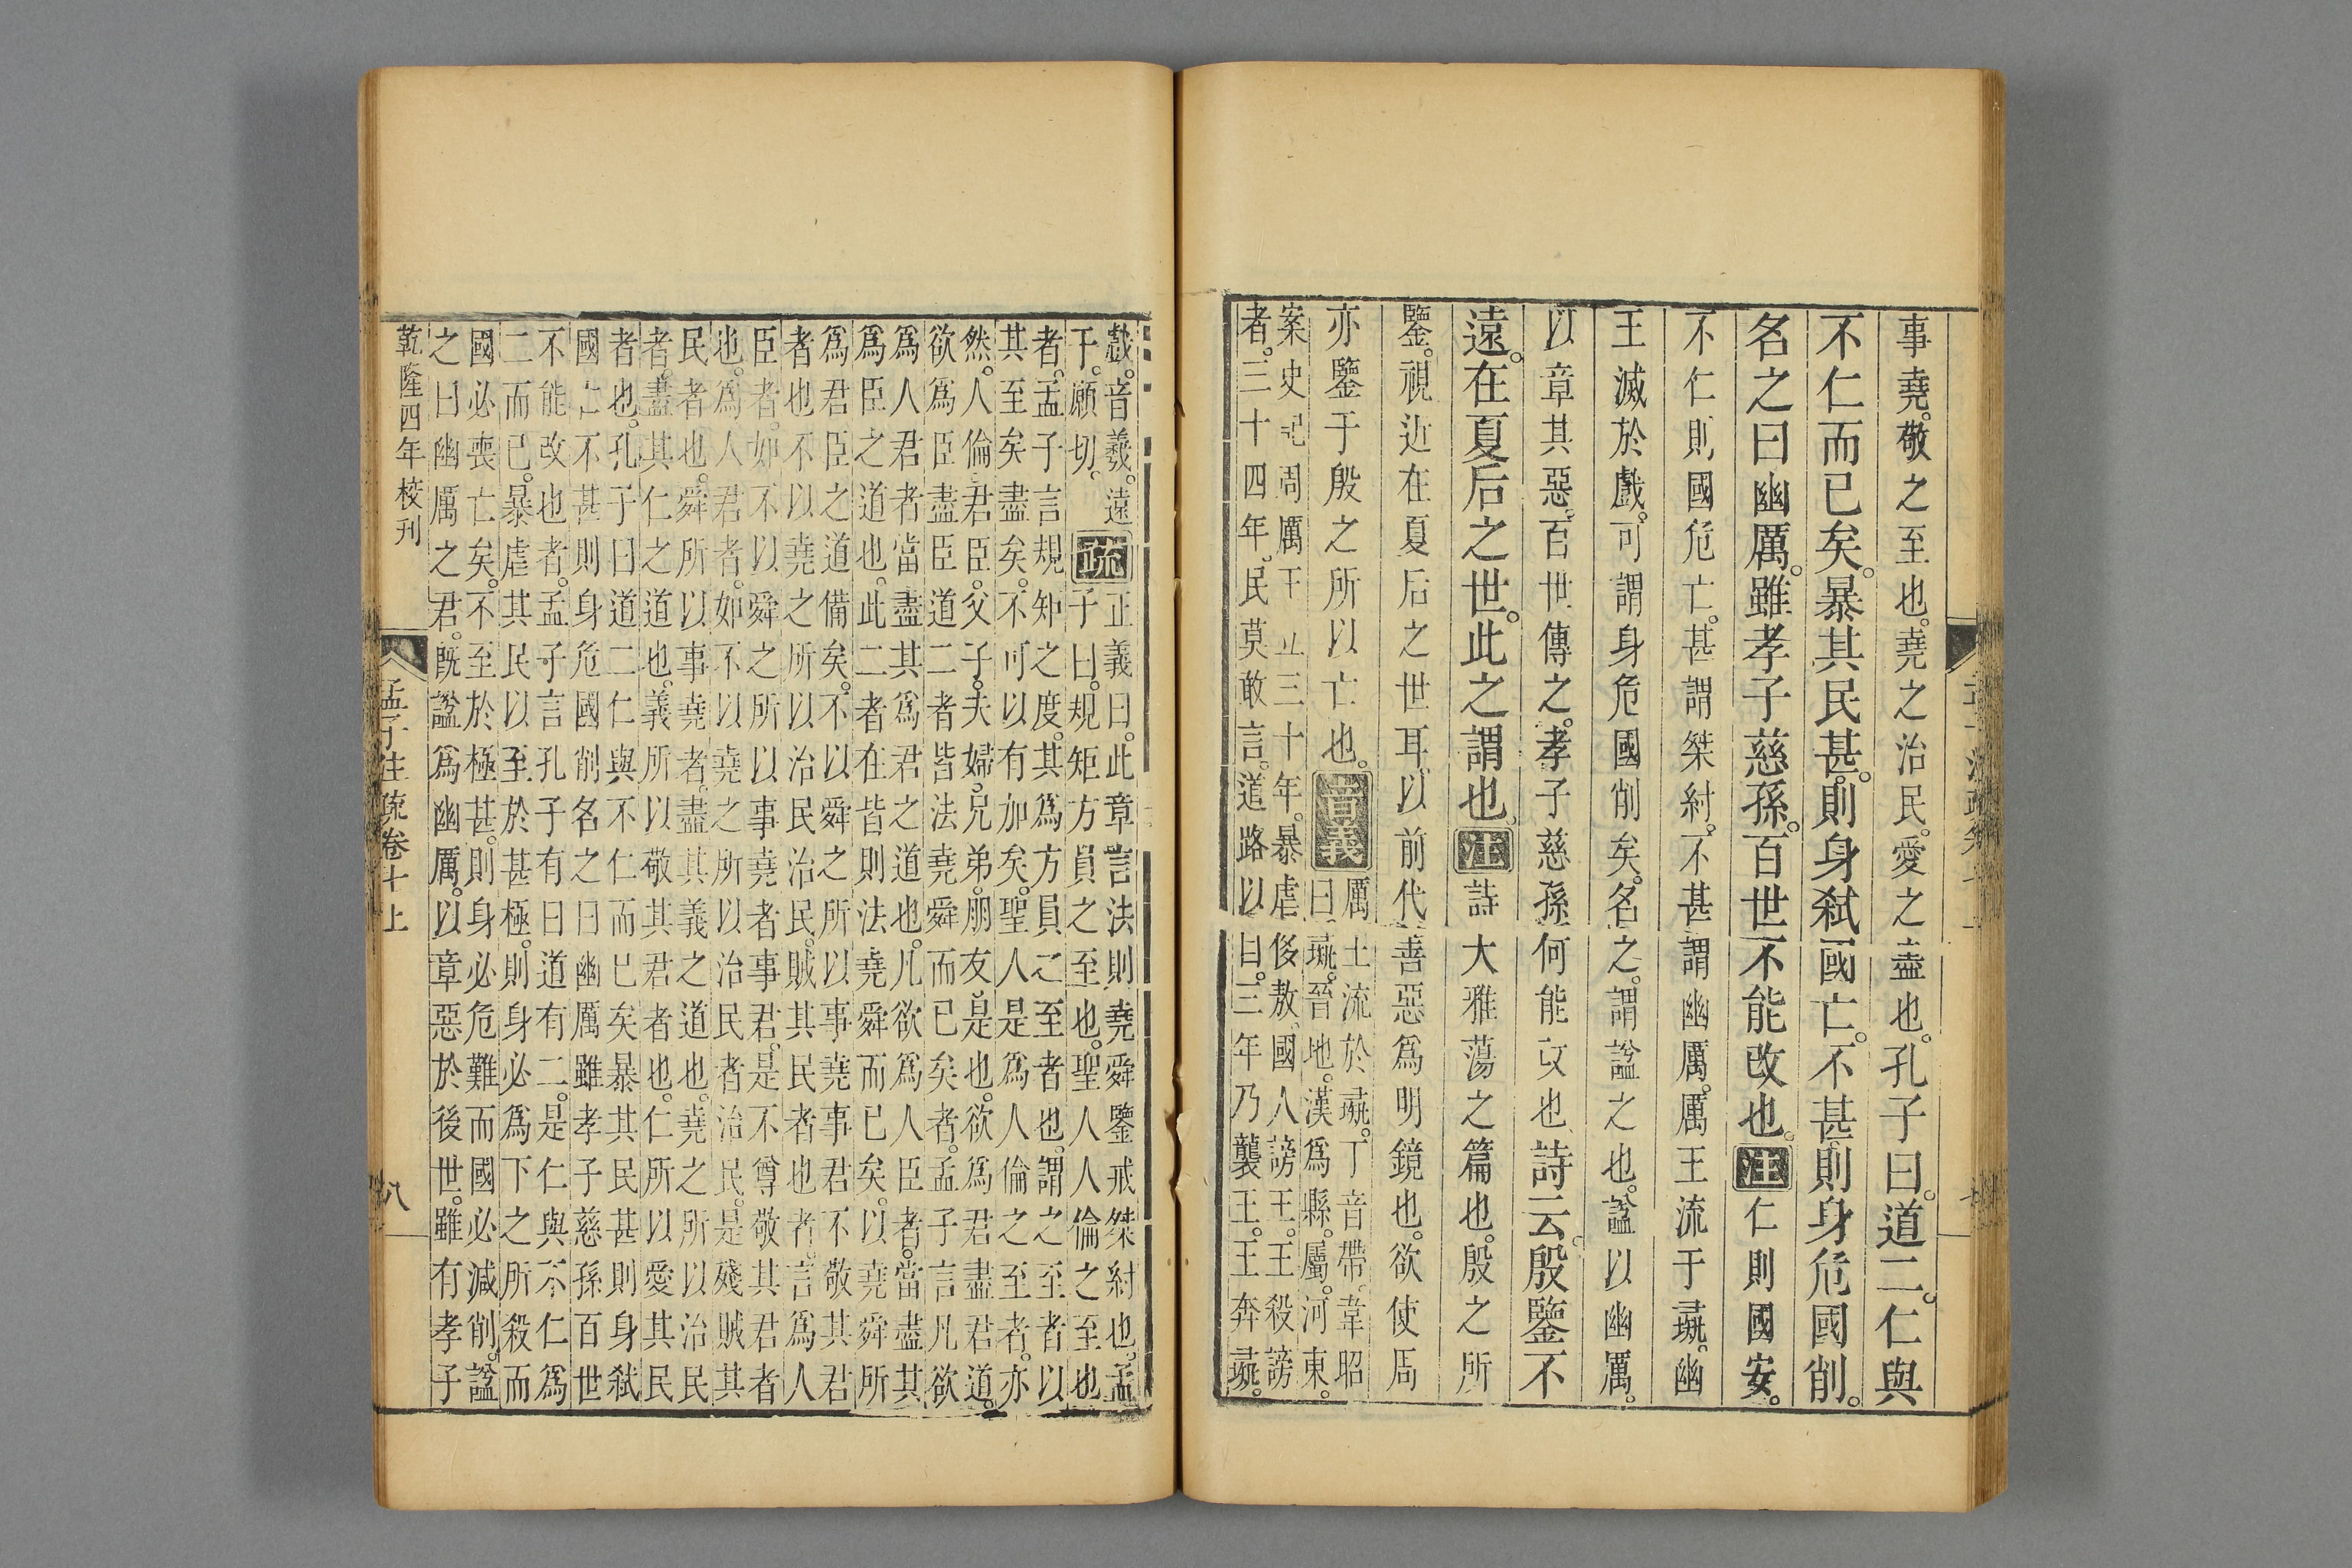 事堯。敬之至也。堯之治民。愛之盡也。孔子曰。道二。仁與
不仁而已矣。暴其民甚。則身弑國亡。不甚。則身危國削。
名之曰幽厲。雖孝子慈孫。百世不能改也。注仁則國安。
不仁則國危亡。甚謂桀紂。不甚謂幽厲。厲王流于彘。幽
王滅於戲。可謂身危國削矣。名之。謂諡之也。諡以幽厲。
以章其惡。百世傳之。孝子慈孫。何能改也。詩云。殷鑒不
遠。在夏后之世。此之謂也。注詩大雅蕩之篇也。殷之所
鑒。視近在夏后之世耳。以前代善惡爲明鏡也。欲使周
亦鑒于殷之所以亡也。音義
厲王流於彘。丁音帶。韋昭
曰彘。晉地。漢爲縣。屬河東。
案史記周厲王立三十年。暴虐侈敖。國人謗王。王殺謗
者。三十四年。民莫敢言。道路以目。三年乃襲王。王奔彘。
戲。音羲。遠
于。願切。
疏
正義曰。此章言法則堯舜鑒戒桀紂也。孟
子曰。規矩方員之至也。聖人人倫之至也
者。孟子言規矩之度。其爲方員之至者也。謂之至者以
其至矣盡矣。不可以有加矣。聖人是爲人倫之至者。亦
然。人倫。君臣。父子。夫婦。兄弟。朋友。是也。欲爲君盡君道。
欲爲臣盡臣道。二者皆法堯舜而已矣者。孟子言凡欲
爲人君者。當盡其爲君之道也。凡欲爲人臣者。當盡其
爲臣之道也。此二者在皆則法堯舜而已矣。以堯舜所
爲君臣之道備矣。不以舜之所以事堯事君不敬其君
者也不以堯之所以治民治民。賊其民者也者。言爲人
臣者。如不以舜之所以事堯者事君。是不尊敬其君者
也。爲人君者。如不以堯之所以治民者治民。是殘賊其
民者也。舜所以事堯者。盡其義之道也。堯之所以治民
者。盡其仁之道也。義所以敬其君者也。仁所以愛其民
者也。孔子曰道二仁與不仁而已矣暴其民甚則身弑
國亡不甚則身危國削名之曰幽厲雖孝子慈孫百世
不能改也者。孟子言孔子有曰道有二。是仁與不仁爲
二而已。暴虐其民以至於甚極。則身必爲下之所殺而
國必喪亡矣。不至於極甚。則身必危難而國必減削。諡
之曰幽厲之君。既諡爲幽厲。以章惡於後世。雖有孝子
乾隆四年校刊
孟子注疏卷十上
八